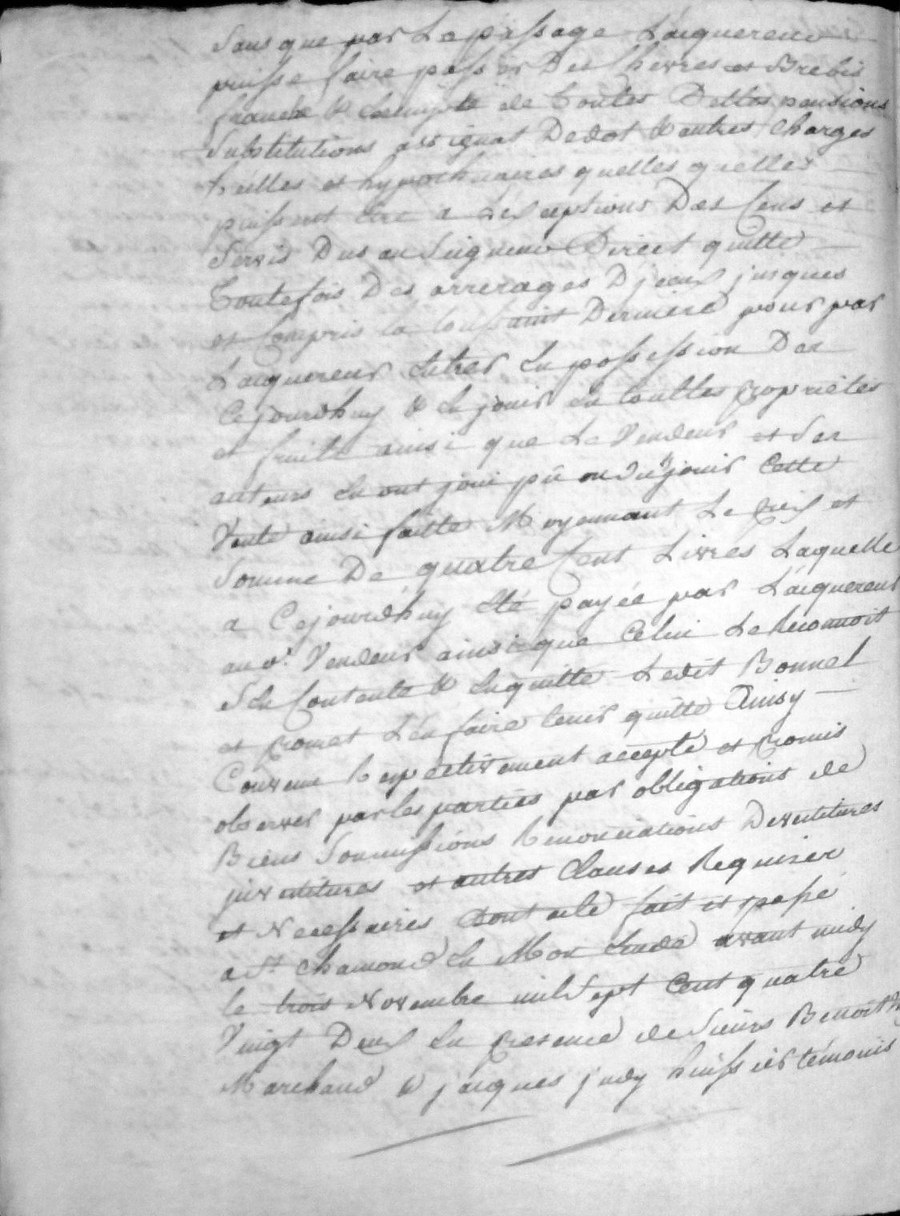 Sans que par La passage L'aiquereur
puisse faire passer Des Chevres et Brebis
franche & exempte de Toutes Dettes pensions
Substitutions assignat Dedot & autres Charges
telles et hypothecaires quelles quelles
puissent être a Lexceptions Des Cens et
Servis Dus au Seigneur Direct quitte
Toutefois Des arrerages D jceux jusques
et Compris la toussaint Derniere pour par
L'aiquereur Entrer En possession Des
Cejourdhuy & En jouir En touttes proprietés
et fruits ainsi que Le Vendeur et Ses
auteurs En ont joui pû ou dû jouir Cette
Vente ainsi faitte Moyennant Le prix et
Somme De quatre Cent Livres Laquelle
a Cejourdhuy Eté payée par L'aiquereur
au d. Vendeur ainsi que Celui Le Reconnoit
S'en Contente & En quitte Ledit Bonnel
et promet L'en faire tenir quitte Ainsy
Convenu Respectivement accepté et promis
observer par les parties par obligations de
Biens Soumissions Renonciations Devetitures
jnvetitures et autres Clauses Requises
et Necessaires Dont acte fait et passé
a St. Chamond En Mon Etude avant midy
le trois Novembre mil Sept Cent quatre
Vingt Deux En presence de Sieurs Benoit
Marchand & jacques judy huissier témoins